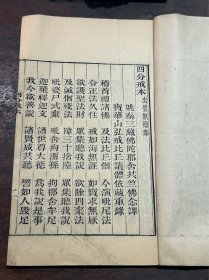 四分戒本 出曇無德部
姚秦三藏佛陀耶舍共竺佛念譯
寶華山弘戒比丘讀體依藏重錄
稽首禮諸佛 及法比丘僧 今演毗尼法
令正法久住 戒如海無涯 如寶求無厭
欲護聖法財 眾集聽我說 欲除四棄法
及滅僧殘法 障三十捨墮 眾集聽我說
毗婆尸式棄 毗舍拘留孫 拘那含牟尼
迦葉釋迦文 諸世尊大德 為我說是事
我今欲善說 諸賢咸共聽 譬如人毀足